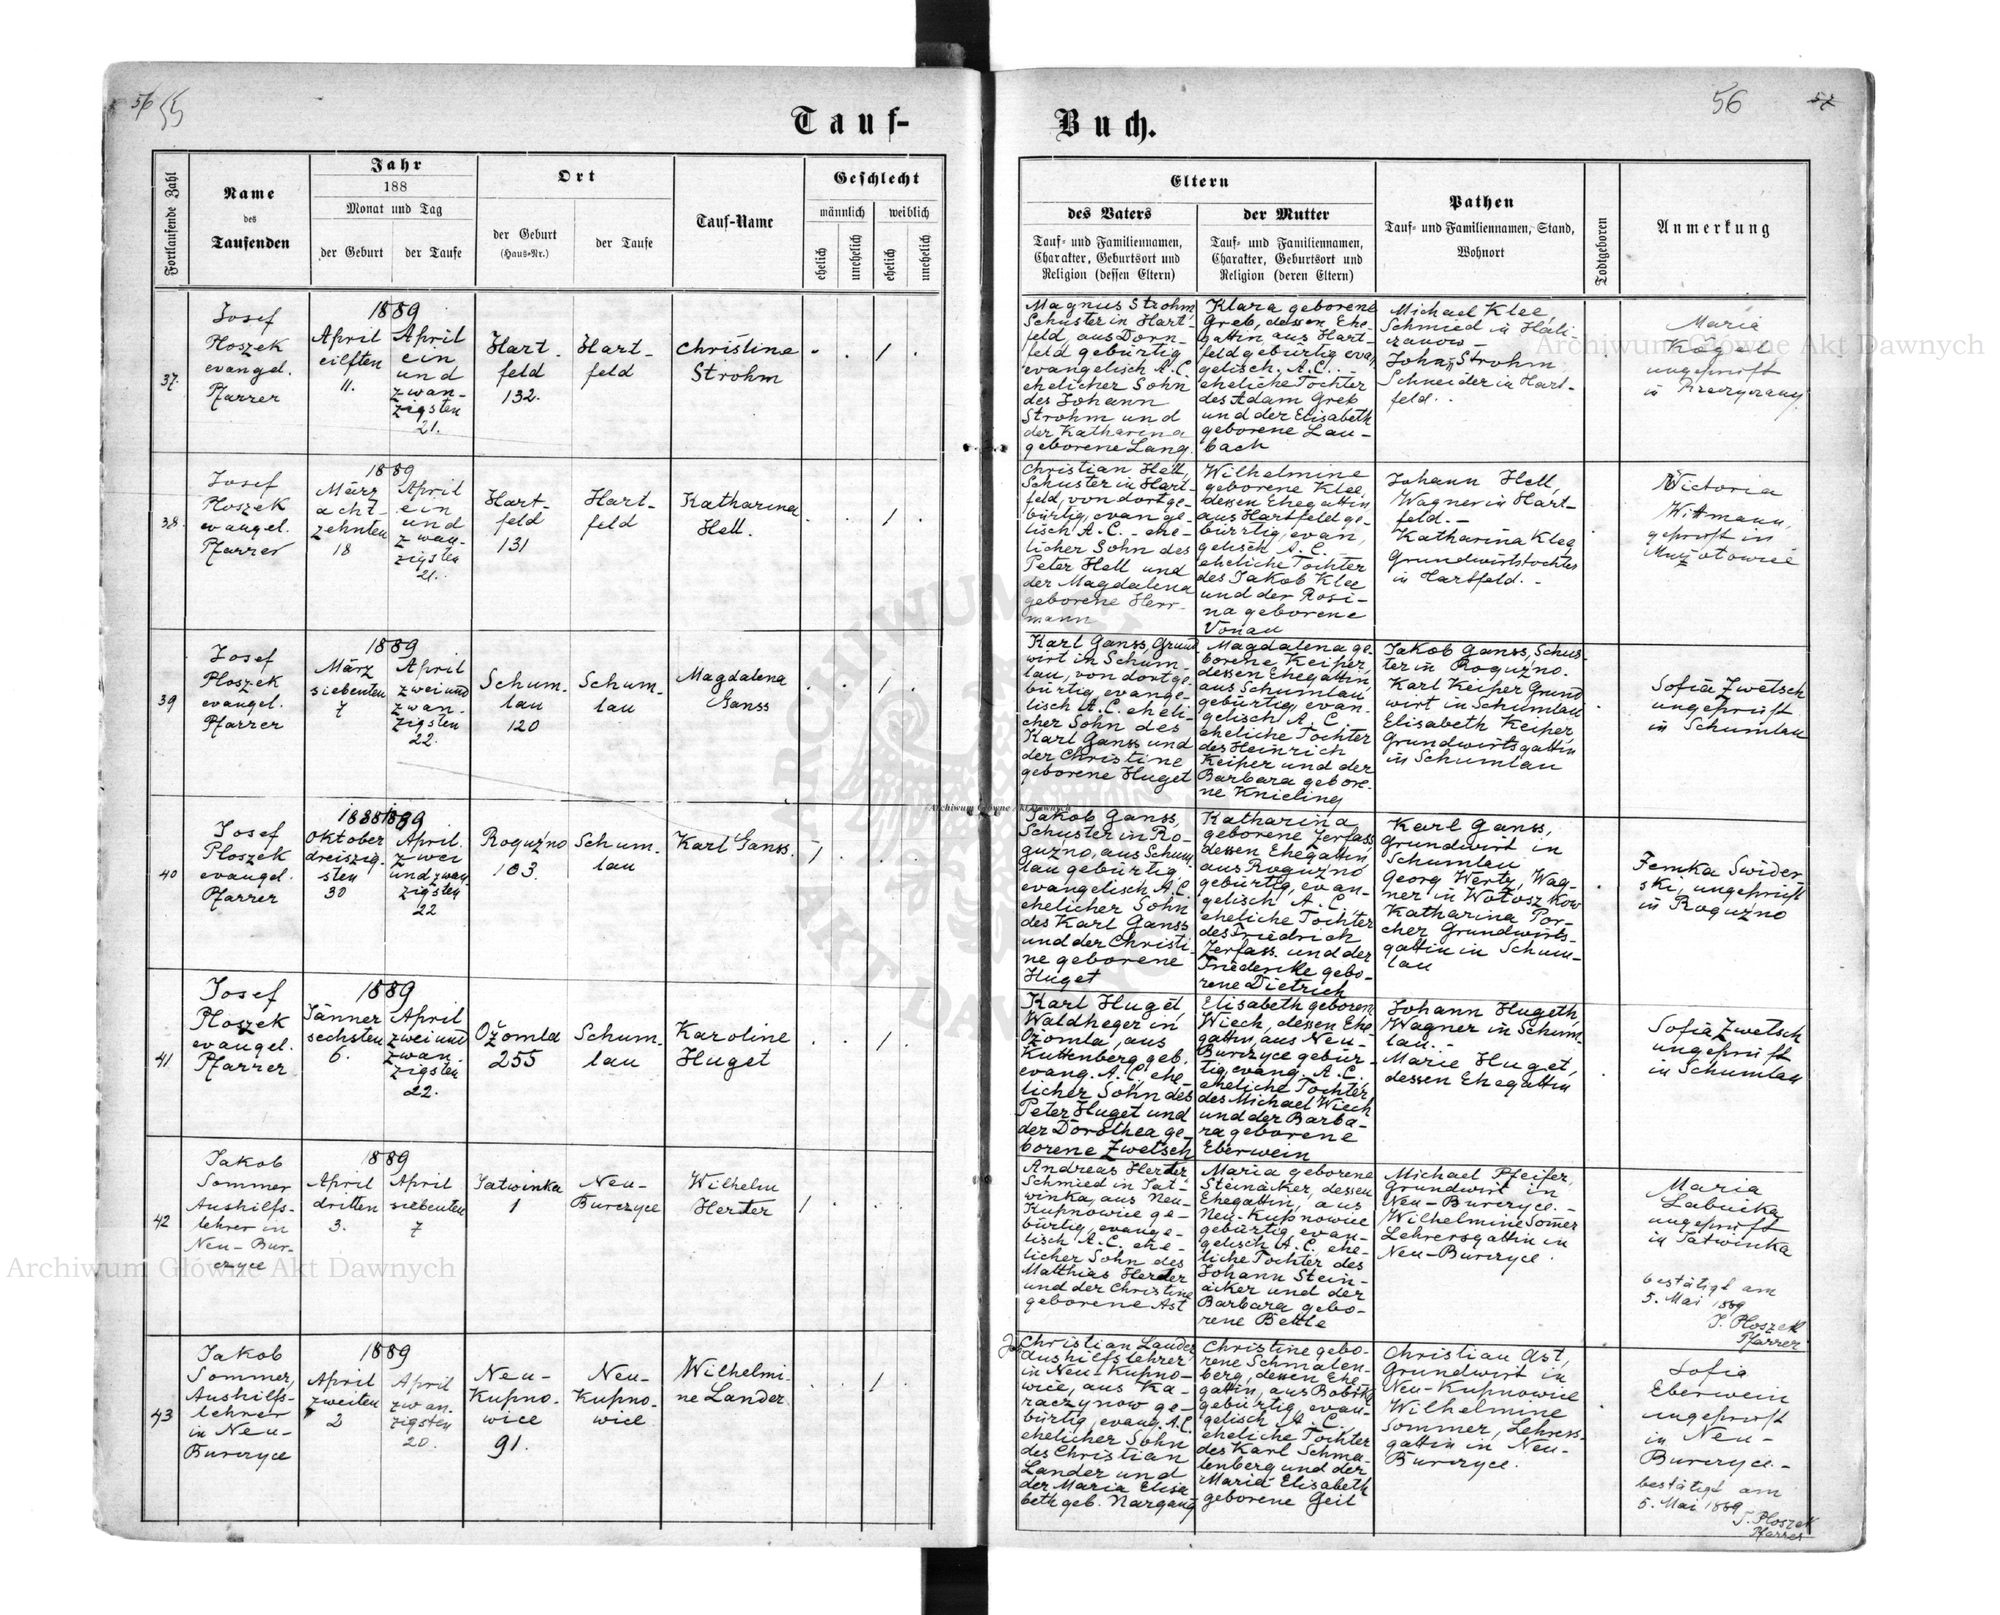 56 55
Tauf-
Fortlaufende Zahl
Name
des
Taufenden
Jahr
188
Monat und Tag
der Geburt
der Taufe
Ort
der Geburt
(Haus-Nr.)
der Taufe
Tauf-Name
Geschlecht
männlich
weiblich
ehelich
unehelich
ehelich
unehelich
56
Buch.
Eltern
des Vaters
Tauf- und Familiennamen,
Charakter, Geburtsort und
Religion (dessen Eltern)
der Mutter
Tauf- und Familiennamen,
Charakter, Geburtsort und
Religion (deren Eltern)
Pathen
Tauf- und Familiennamen, Stand,
Wohnort
Todtgeboren
Anmerkung
37.
Josef
Ploszek
evangel.
Pfarrer
1889
April
eilften
11.
April
ein
und
zwan-
zigsten
21.
Hart-
feld
132.
Hart-
feld
Christina
Strohm
1
Magnus Strohm,
Schuster in Hart-
feld, aus Dorn-
feld gebürtig,
evangelisch A.C.
ehelicher Sohn
des Johann
Strohm und
der Katharina
geborene Lang.
Klara geborene
Greb, dessen Ehe-
gattin, aus Hart-
feld gebürtig evan-
gelisch. A.C. -
eheliche Tochter
des Adam Greb
und der Elisabeth
geborene Lau-
bach
Michael Klee,
Schmied in Hali-
czanow -
Johann Strohm
Schneider in Hart-
feld.
Maria
Kogel
ungeprüft
in
38.
Josef
Ploszek
evangel.
Pfarrer
1889
März
acht-
zehnten
18
April
ein
und
zwan-
zigsten
21.
Hart-
feld
131
Hart-
feld
Katharina
Hell.
1
Christian Hell,
Schuster in Hart-
feld, von dort ge-
bürtig, evange-
lisch A.C. - ehe-
licher Sohn des
Peter Hell und
der Magdalena
geborene Herr-
mann
Wilhelmine
geborene Klee,
dessen Ehegattin,
aus Hartfeld ge-
bürtig, evan-
gelisch A.C.
eheliche Tochter
des Jakob Klee
und der Rosi-
na geborene
Vonau
Johann Hell,
Wagner in Hart-
feld. -
Katharina Klee,
Grundwirtstochter
in Hartfeld. -
Victoria
Wittmann,
geprüft in
39
Josef
Ploszek
evangel.
Pfarrer
1889
März
siebenten
7
April
zwei und
zwan-
zigsten
22.
Schum-
lau
120
Schum-
lau
Magdalena
Ganss
1
Karl Ganss, Grund-
wirt in Schum-
lau, von dort ge-
bürtig, evange-
lisch A.C. eheli-
cher Sohn des
Karl Ganss und
der Christine
geborene Huget
Magdalena ge-
borene Keiper,
dessen Ehegattin
aus Schumlau
gebürtig, evan-
gelisch A.C.
eheliche Tochter
des Heinrich
Keiper und der
Barbara gebore-
ne Knieling
Jakob Ganss, Schus-
ter in Roguźno.
Karl Keiper Grund-
wirt in Schumlau
Elisabeth Keiper,
Grundwirtsgattin
in Schumlau
Sofia Zwetsch
ungeprüft
in Schumlau
40
Josef
Ploszek
evangel.
Pfarrer
1888
1889
Oktober
dreiszig-
sten
30
April.
zwei
und zwan-
zigsten
22
Roguźno
103.
Schum-
lau
Karl Ganss.
1
Jakob Ganss,
Schuster in Ro-
guźno, aus Schum-
lau gebürtig,
evangelisch A.C.
ehelicher Sohn
des Karl Ganss
und der Christi-
ne geborene
Huget
Katharina
geborene Zerfass,
dessen Ehegattin,
aus Roguźno
gebürtig, evan-
gelisch A.C.
eheliche Tochter
des Friedrich
Zerfass und der
Friederike gebo-
rene Dietrich
Karl Ganss,
Grundwirt in
Schumlau
Georg Wertz, Wag-
ner in Wołoszków
Katharina Por-
cher Grundwirts-
gattin in Schum-
lau
Femka Swider-
ski, ungeprüft
in Roguźno
41
Josef
Ploszek
evangel.
Pfarrer
1889
Jänner
sechsten
6.
April
zwei und
zwan-
zigsten
22.
Ożomla
255
Schum-
lau
Karoline
Huget
1
Karl Huget,
Waldheger in
Ożomla, aus
Kuttenberg geb.
evang. A.C. ehe-
licher Sohn des
Peter Huget und
der Dorothea ge-
borene Zwetsch
Elisabeth geborene
Wiech, dessen Ehe-
gattin, aus Neu-
Burczyce gebür-
tig, evang. A.C.
eheliche Tochter
des Michael Wiech
und der Barba-
ra geborene
Eberwein
Johann Hugeth,
Wagner in Schum-
lau. -
Marie Huget,
dessen Ehegattin
Sofia Zwetsch
ungeprüft
in Schumlau
42
Jakob
Sommer
Aushilfs-
lehrer in
Neu-Bur-
czyce
1889
April
dritten
3.
April
siebenten
7
Tatwinka
1
Neu-
Burczyce
Wilhelm
Herder
1
Andreas Herder
Schmied in Tat-
winka, aus Neu-
Kupnowice ge-
bürtig, evange-
lisch A.C. ehe-
licher Sohn des
Matthias Herder
und der Christine
geborene Ast
Maria geborene
Steinäcker, dessen
Ehegattin, aus
Neu-Kupnowice
gebürtig, evan-
gelisch A.C. ehe-
liche Tochter des
Johann Stein-
äcker und der
Barbara gebo-
rene Bettle
Michael Pfeifer,
Grundwirt in
Neu-Burczyce. -
Wilhelmine Somer
Lehrersgattin in
Neu-Burczyce.
Maria
Labucka
ungeprüft
in Tatwinka
bestätigt am
5. Mai 1889
J. Ploszek
Pfarrer
43
Jakob
Sommer,
Aushilfs-
lehrer
in Neu-
Burczyce
1889
April
zweiten
2
April
zwan-
zigsten
20.
Neu-
Kupno-
wice
91.
Neu-
Kupno-
wice
Wilhelmi-
ne Lander
1
Christian Lander
Aushilfslehrer
in Neu-Kupno-
wice, aus Ka-
raczynow ge-
bürtig, evang. A.C.
ehelicher Sohn
des Christian
Lander und
der Maria Elisa-
beth geb. Nargang
Christine gebo-
rene Schmalen-
berg, dessen Ehe-
gattin, aus Bobrka
gebürtig, evan-
gelisch A.C.
eheliche Tochter
des Karl Schma-
lenberg und der
Maria Elisabeth
geborene Geil
Christian Ast,
Grundwirt in
Neu-Kupnowice
Wilhelmine
Sommer, Lehrers-
gattin in Neu-
Burczyce.
Sofia
Eberwein
ungeprüft
in Neu-
Burczyce. -
bestätigt am
5. Mai 1889
J. Ploszek
Pfarrer
Archiwum Główne Akt Dawnych
Archiwum Główne Akt Dawnych
Archiwum Główne Akt Dawnych
ARCHIWUM
AKT DAWNYCH